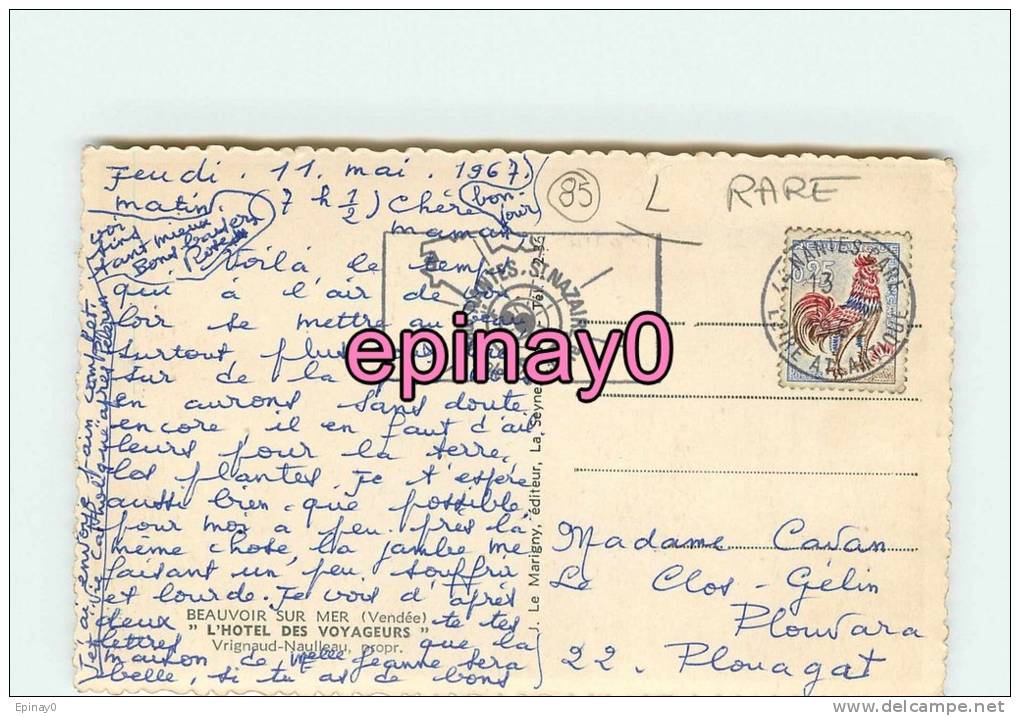 Jeudi. 11. mai. 1967)
matin 7 h 1/2) Chère
bon
jour
maman
voi
sins
tant mieux
Bons baisers
Rose
Voilà, le temps
qui à l'air de vou
loir se mettre au beau
surtout plus que
sur de la
en aurons sans doute
encore il en faut d'ail
leurs pour la terre,
les plantes. Je t'espère
aussi bien que possible,
pour moi a peu près la
même chose, la jambe me
faisant un peu souffrir
et lourde. Je vois d'après
deux te tes
lettres que la
maison de Melle Jeanne sera
belle, si tu as de bons
Je t'ai envoyé pain complet
Vie Catholique après Pèlerin
85
L RARE
NANTES. ST NAZAIRE
NANTES GARE
13
LOIRE ATLANTIQUE
0,25
epinay0
J. Le Marigny, éditeur, La Seyne
Tél.
BEAUVOIR SUR MER (Vendée)
" L'HOTEL DES VOYAGEURS "
Vrignaud-Naulleau, propr.
Madame Cavan
Le Clos-Gélin
Plouvara
22. Plouagat
Epinay0
www.delcampe.net